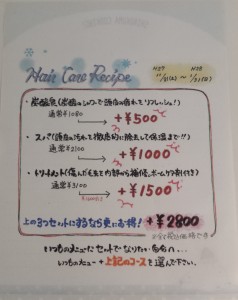 Hair Care Recipe
H27 H28
11/21(土)〜1/31(日)
・炭酸泉(炭酸のシャワーで頭皮の疲れもリフレッシュ!)
通常¥1080 → +¥500
・スパ(頭皮の汚れを徹底的に除去して保湿まで!!)
通常¥2100 → +¥1000
・トリートメント(傷んだ毛先を内部から補修。ホームケア剤付き)
通常¥3100 → +¥1500
上の3つセットにするなら更にお得! +¥2800
※全て税込価格です
いつものメニューとセットで なりたい 髪へ...
いつものメニュー + 上記のコース を選んで下さい。